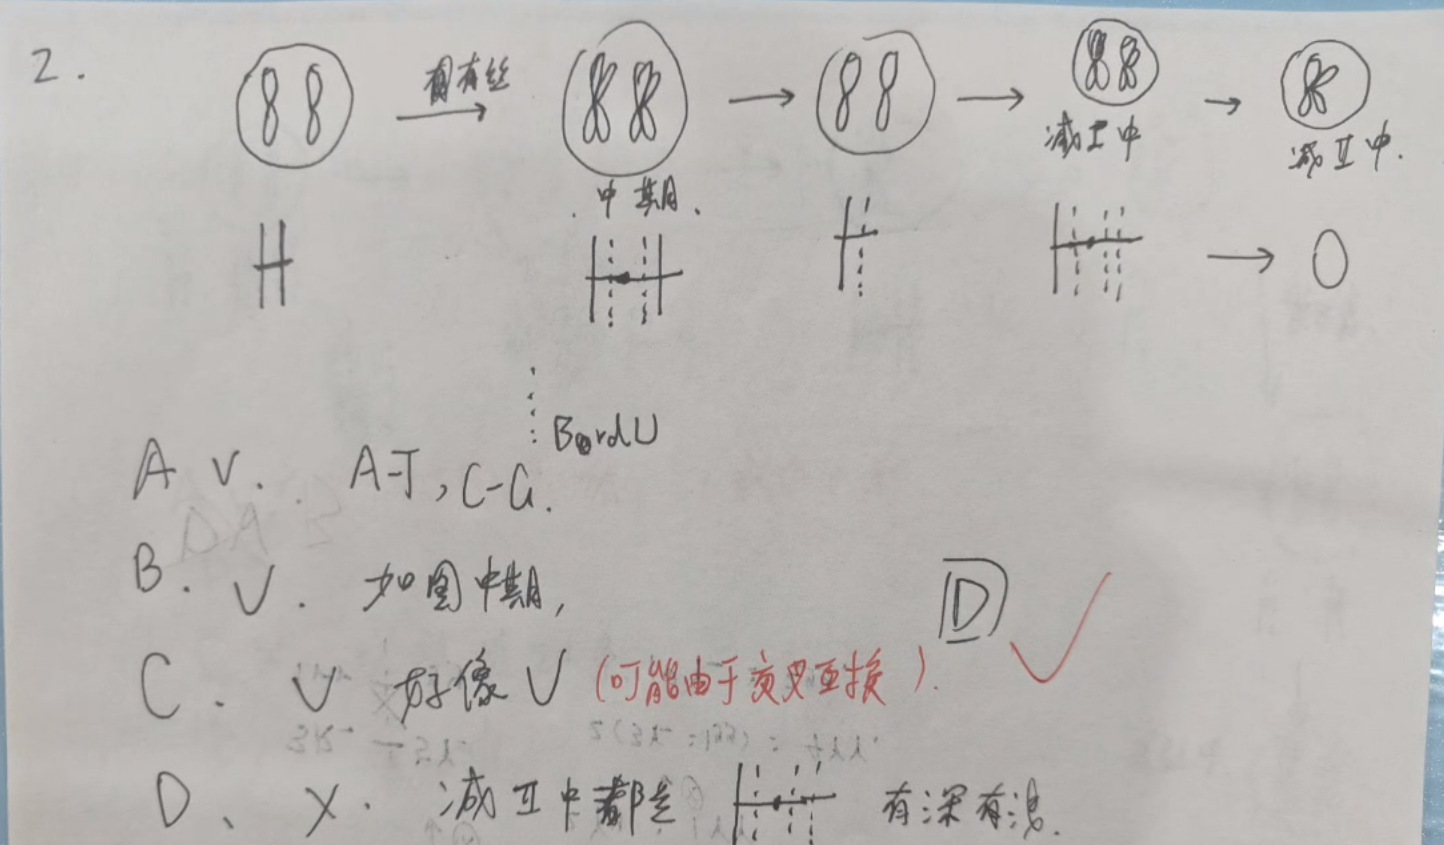 2.
有丝
中期.
减Ⅰ中
减Ⅱ中.
BrdU
A V. A-T, C-G.
B. V. 如图中期,
D
C. V 好像V (可能由于交叉互换).
D、X. 减Ⅱ中都是 有深有浅.